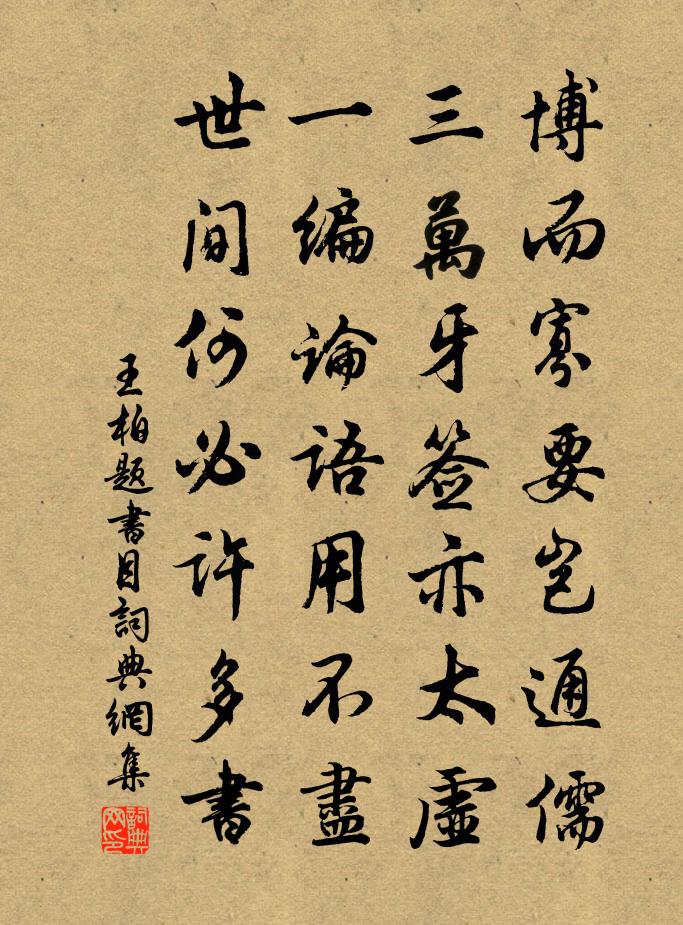 博而寡要豈通儒
三萬牙签亦太虛
一编論語用不盡
世间何必許多書
王柏题書目詞典網集
詞典網印